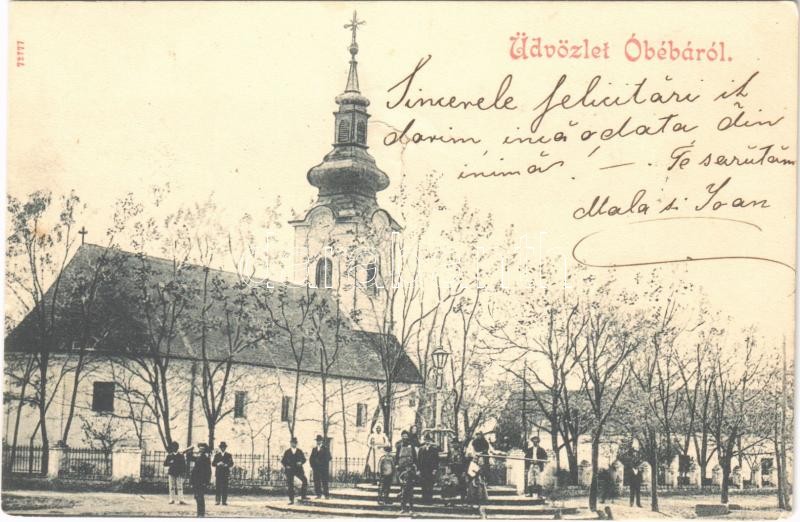 72777
Üdvözlet Óbébáról.
Sincerele felicitări iti
dorim încă odata din
inimă! —. Te sarutăm
Mala si Ioan